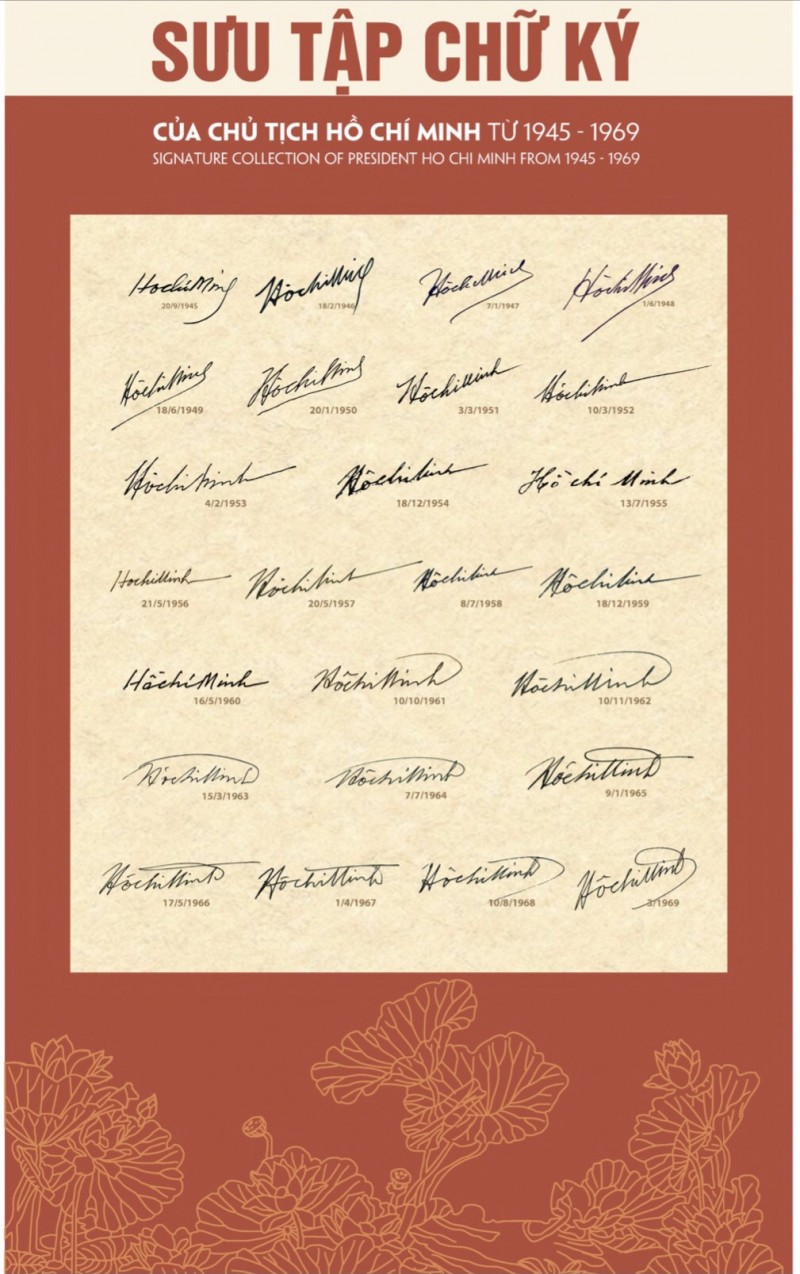 SƯU TẬP CHỮ KÝ
CỦA CHỦ TỊCH HỒ CHÍ MINH TỪ 1945 - 1969
SIGNATURE COLLECTION OF PRESIDENT HO CHI MINH FROM 1945 - 1969
HochiMinh HồchiMinh HồchiMinh HồchiMinh
20/9/1945 18/2/1946 7/1/1947 1/6/1948
HồchiMinh HồchiMinh HồchiMinh HồchiMinh
18/6/1949 20/1/1950 3/3/1951 10/3/1952
HồchiMinh HồchiMinh Hồ chí Minh
4/2/1953 18/12/1954 13/7/1955
HochiMinh HồchiMinh HồchiMinh HồchiMinh
21/5/1956 20/5/1957 8/7/1958 18/12/1959
HồchíMinh HồchiMinh HồchiMinh
16/5/1960 10/10/1961 10/11/1962
HồchiMinh HồchiMinh HồchiMinh
15/3/1963 7/7/1964 9/1/1965
HồchiMinh HồchiMinh HồchiMinh HồchiMinh
17/5/1966 1/4/1967 10/8/1968 3/1969